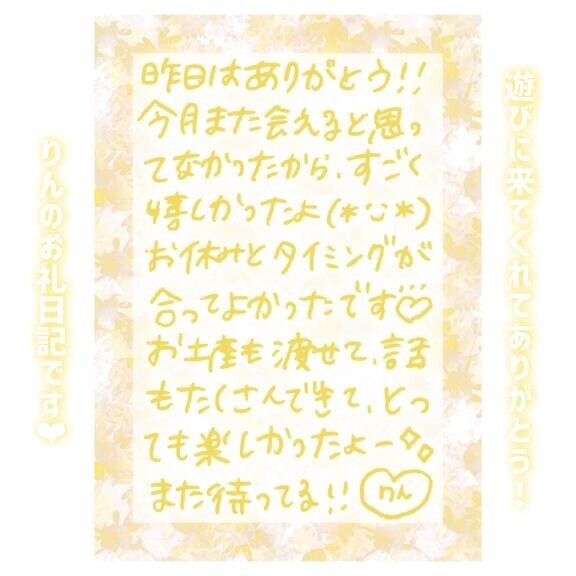 遊びに来てくれてありがとう！
昨日はありがとう!!
今月また会えると思っ
てなかったから、すごく
嬉しかったよ(*¨*)
お休みとタイミングが
合ってよかったです♡
お土産も渡せて、話
もたくさんできて、とっ
ても楽しかったよー✧✧
また待ってる!! りん
りんのお礼日記です❤